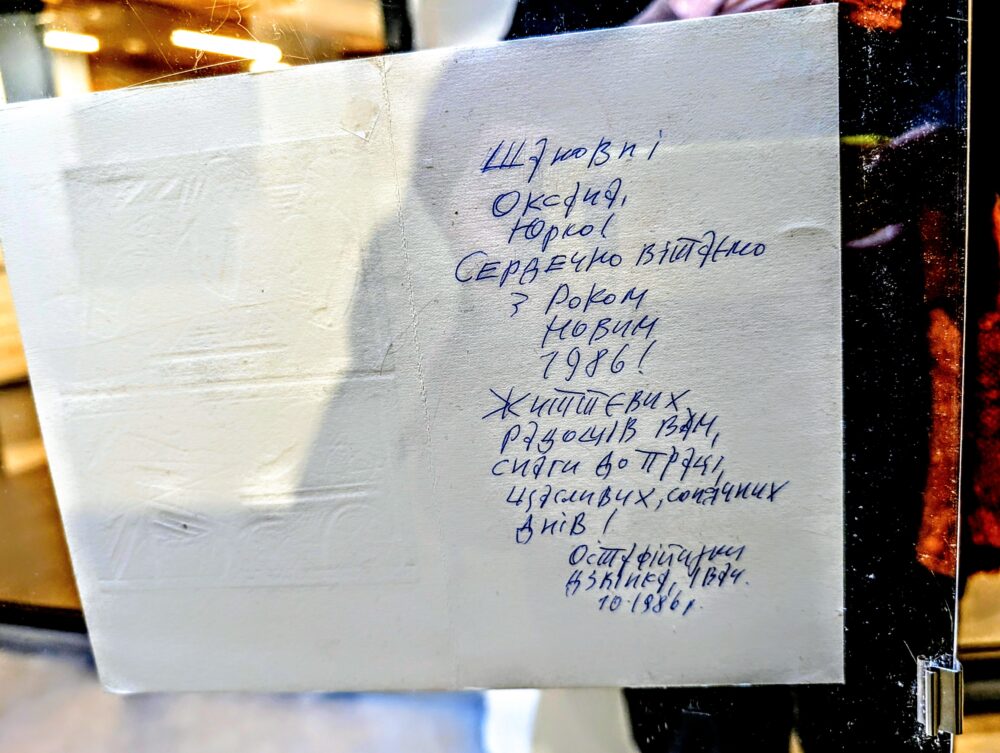 Шановні
Оксана,
Юрко!
Сердечно вітаємо
з Роком
Новим
1986!
Життєвих
радощів Вам,
снаги до праці,
щасливих, сонячних
днів!
Остафійчуки
Дзвінка, Іван.
10.1986 р.